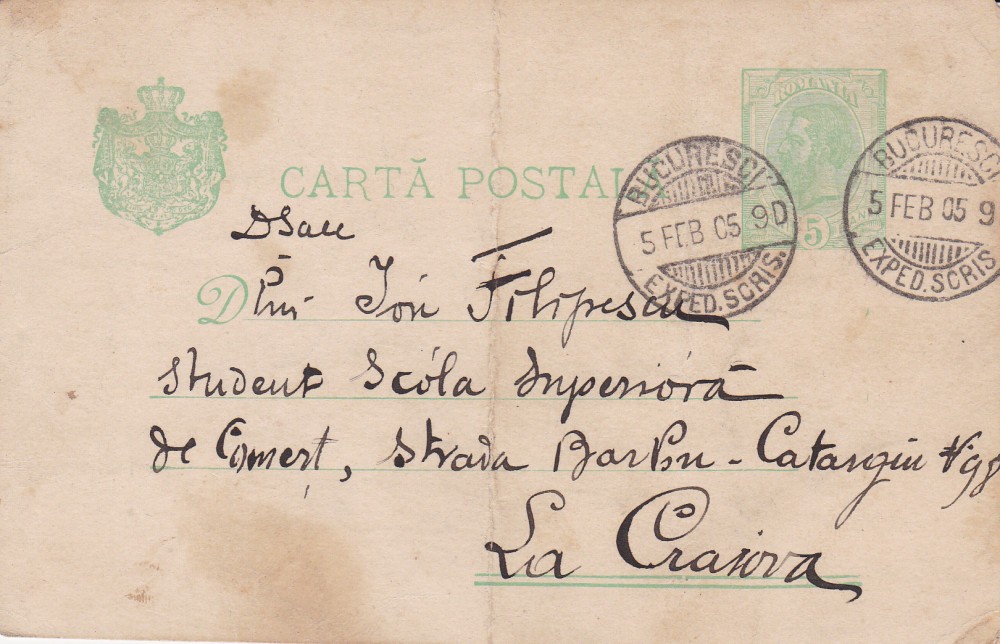 ROMANIA
CARTĂ POSTAL
5 BANI
BUCURESCI
5 FEB 05 9D
EXPED. SCRIS.
BUCURESCI
5 FEB 05 9
EXPED. SCRIS
DSale
Dlui Ión Filipescu
Student Scóla Superióră
de Comerț, Strada Barbu-Catargiu
La Craiova